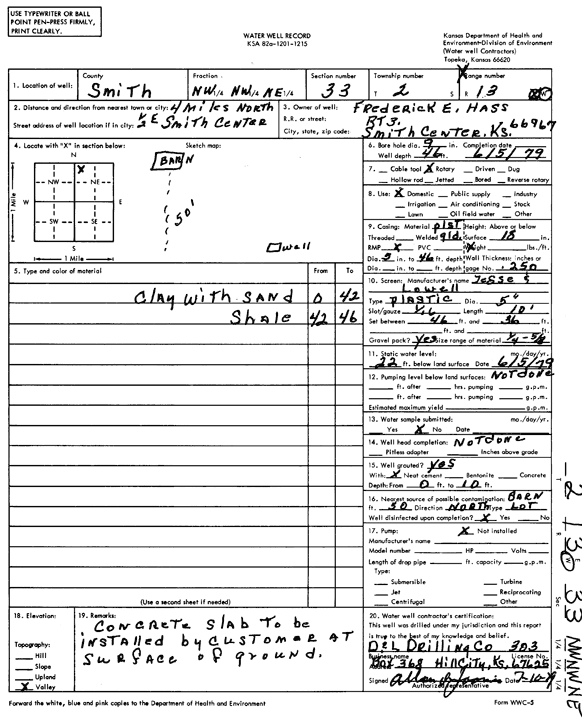 USE TYPEWRITER OR BALL
POINT PEN-PRESS FIRMLY,
PRINT CLEARLY.
WATER WELL RECORD
KSA 82a-1201-1215
Kansas Department of Health and
Environment-Division of Environment
(Water well Contractors)
Topeka, Kansas 66620
1. Location of well: County Smith Fraction NW1/4 NW1/4 NE1/4 Section number 33 Township number T 2 S Range number R 13 E/W
2. Distance and direction from nearest town or city: 4 Miles North
Street address of well location if in city: 1/2 E Smith Center
3. Owner of well: Frederick E. Hass
R.R. or street: RT 3.
City, state, zip code: Smith Center, Ks. 66967
4. Locate with "X" in section below:
N
X
NW NE
W E
SW SE
S
1 Mile
1 Mile
Sketch map:
BARN
50'
well
5. Type and color of material From To
Clay with SAND 0 42
Shale 42 46
(Use a second sheet if needed)
6. Bore hole dia. 9 in. Completion date
Well depth 46 ft. 6/5/79
7. Cable tool X Rotary Driven Dug
Hollow rod Jetted Bored Reverse rotary
8. Use: X Domestic Public supply Industry
Irrigation Air conditioning Stock
Lawn Oil field water Other
9. Casing: Material plst Height: Above or below
Threaded Welded gld. Surface 18 in.
RMP X PVC Weight lbs./ft.
Dia. 5 in. to 46 ft. depth Wall Thickness: inches or
Dia. in. to ft. depth gage No. .250
10. Screen: Manufacturer's name Jesse &
Lowell
Type PLASTIC Dia. 5"
Slot/gauze 1/16 Length 10'
Set between 46 ft. and 36 ft.
ft. and ft.
Gravel pack? Yes Size range of material 1/4-5/8
11. Static water level: mo./day/yr.
22 ft. below land surface Date 6/5/79
12. Pumping level below land surfaces: NOT done
ft. after hrs. pumping g.p.m.
ft. after hrs. pumping g.p.m.
Estimated maximum yield g.p.m.
13. Water sample submitted: mo./day/yr.
Yes X No Date
14. Well head completion: NOT done
Pitless adapter Inches above grade
15. Well grouted? Yes
With: X Neat cement Bentonite Concrete
Depth: From 0 ft. to 10 ft.
16. Nearest source of possible contamination: BARN
ft. 50 Direction North Type LOT
Well disinfected upon completion? X Yes No
17. Pump: X Not installed
Manufacturer's name
Model number HP Volts
Length of drop pipe ft. capacity g.p.m.
Type:
Submersible Turbine
Jet Reciprocating
Centrifugal Other
18. Elevation:
Topography:
Hill
Slope
Upland
X Valley
19. Remarks:
Concrete Slab to be
installed by customer AT
surface of ground.
20. Water well contractor's certification:
This well was drilled under my jurisdiction and this report
is true to the best of my knowledge and belief.
D&L Drilling Co 303
Business name License No.
Box 368 Hill City, Ks. 67625
Signed Date 7-10-79
Authorized representative
Forward the white, blue and pink copies to the Department of Health and Environment
Form WWC-5
2 13 W 33 NW NW NE
T R E W Sec 1/4 1/4 1/4